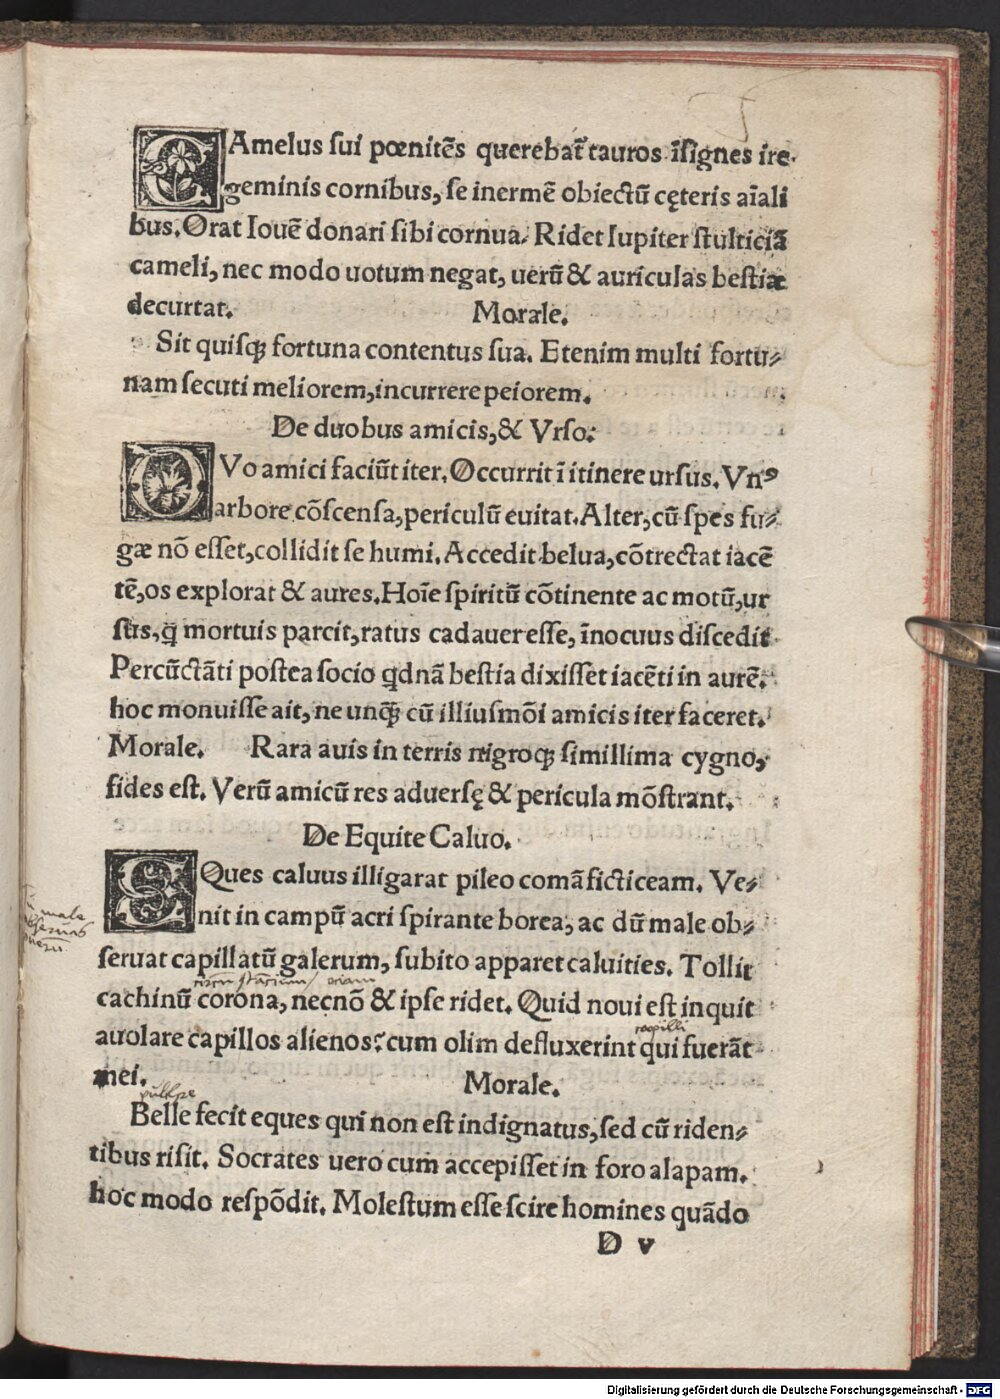 CAmelus ſui pœnitẽs querebat᷑ tauros ĩſignes ire
geminis cornibus, ſe inermẽ obiectũ cęteris aĩali
bus. Orat Iouẽ donari ſibi cornua. Ridet Iupiter ſtulticiã
cameli, nec modo uotum negat, uerũ & auriculas beſtiæ
decurtat. Morale.
Sit quiſq̧ fortuna contentus ſua. Etenim multi fortu⸗
nam ſecuti meliorem, incurrere peiorem.
De duobus amicis, & Vrſo.
DVo amici faciũt iter. Occurrit ĩ itinere urſus. Vnꝰ
arbore cõſcenſa, periculũ euitat. Alter, cũ ſpes fu⸗
gæ nõ eſſet, collidit ſe humi. Accedit belua, cõtrectat iacẽ
tẽ, os explorat & aures. Hoĩe ſpiritũ cõtinente ac motũ, ur
ſus, q̃ mortuis parcit, ratus cadauer eſſe, ĩnocuus diſcedit
Percũctãti poſtea ſocio qdnã beſtia dixiſſet iacẽti in aurẽ.
hoc monuiſſe ait, ne unq̃ cũ illiuſmõi amicis iter faceret.
Morale. Rara auis in terris nigroq̧ ſimillima cygno,
fides eſt. Verũ amicũ res aduerſę & pericula mõſtrant.
De Equite Caluo.
EQues caluus illigarat pileo comã ficticeam. Ve⸗
nit in campũ acri ſpirante borea, ac dũ male ob⸗
ſeruat capillatũ galerum, ſubito apparet caluities. Tollit
cachinũ corona, necnõ & ipſe ridet. Quid noui eſt inquit
capilli
auolare capillos alienos? cum olim defluxerint qui fuerãt
mei. Morale.
Belle fecit eques qui non eſt indignatus, ſed cũ riden⸗
tibus riſit. Socrates uero cum accepiſſet in foro alapam.
hoc modo reſpõdit. Moleſtum eſſe ſcire homines quãdo
D v
Digitalisierung gefördert durch die Deutsche Forschungsgemeinschaft - DFG